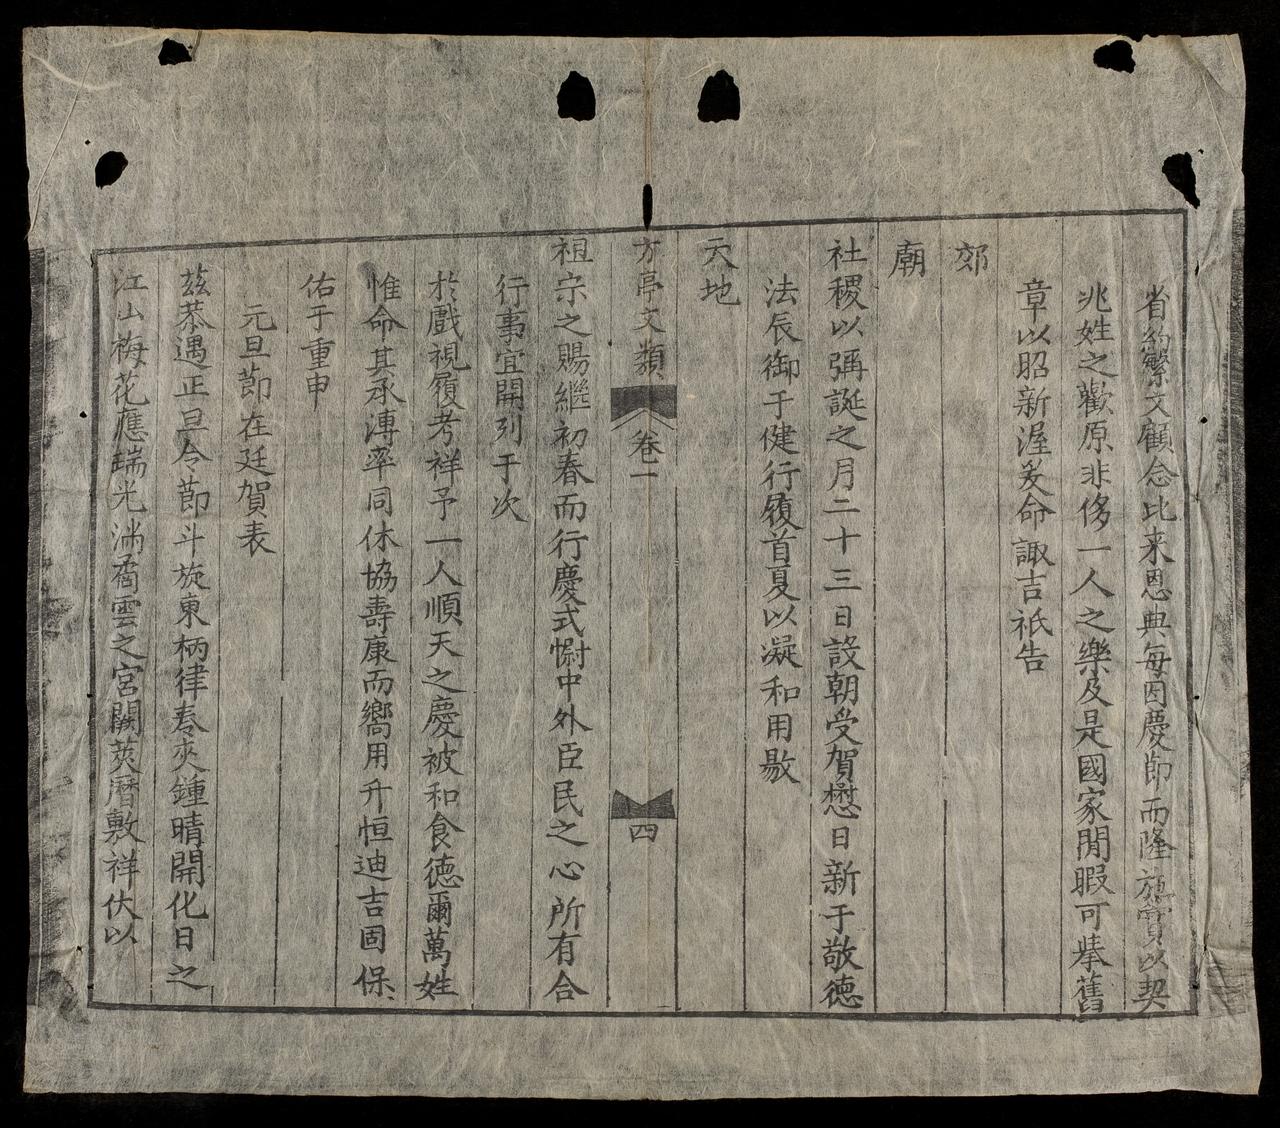 省約繁文顧念比来恩典每因慶節而隆施實以契
兆姓之歡原非侈一人之樂及是國家閒暇可擧舊
章以昭新渥爰命諏吉祇告
郊
廟
社稷以彌誕之月二十三日設朝受賀懋日新于敬德
法辰御于健行履首夏以凝和用敭
天地
方亭文類 卷一 四
祖宗之賜繼初春而行慶式慰中外臣民之心所有合
行事宜開列于次
於戲視履考祥予一人順天之慶被和食德爾萬姓
惟命其承溥率同休協壽康而嚮用升恒迪吉固保
佑于重申
元旦節在廷賀表
茲恭遇正旦令節斗旋東柄律奏夾鍾晴開化日之
江山梅花應瑞光滿矞雲之宮闕蓂曆敷祥伏以